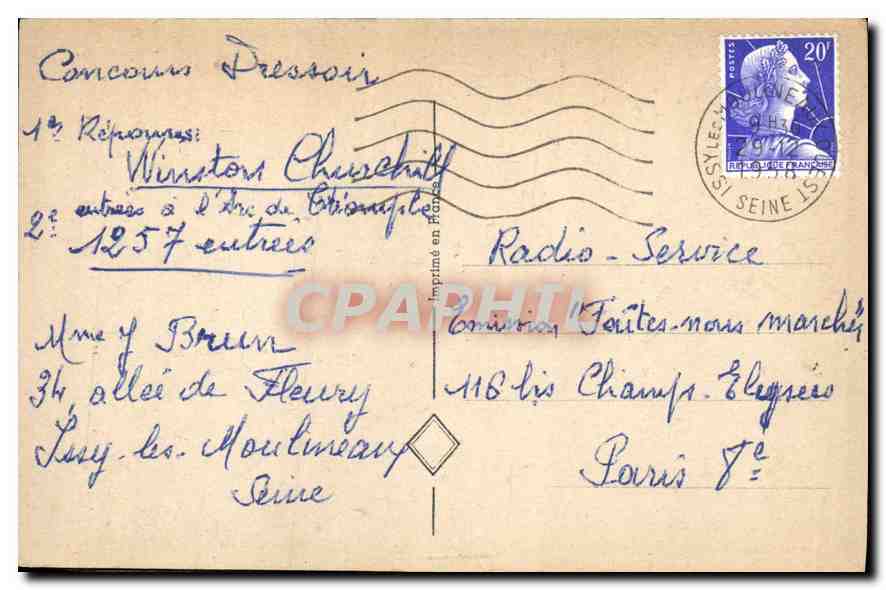 Concours Dressoir
1er Réponses:
Winston Churchill
2e entrées à l'Arc de Triomphe
1257 entrées
Mme J Brun
34, allée de Fleury
Issy-les-Moulineaux
Seine
Imprimé en France
POSTES
20F
REPUBLIQUE FRANCAISE
ISSY LES MOULINEAUX
9 H30
29-12
1958
SEINE
CPAPHIL
Radio-Service
Emission "Faites-nous marcher"
116 bis Champs-Elysées
Paris 8e